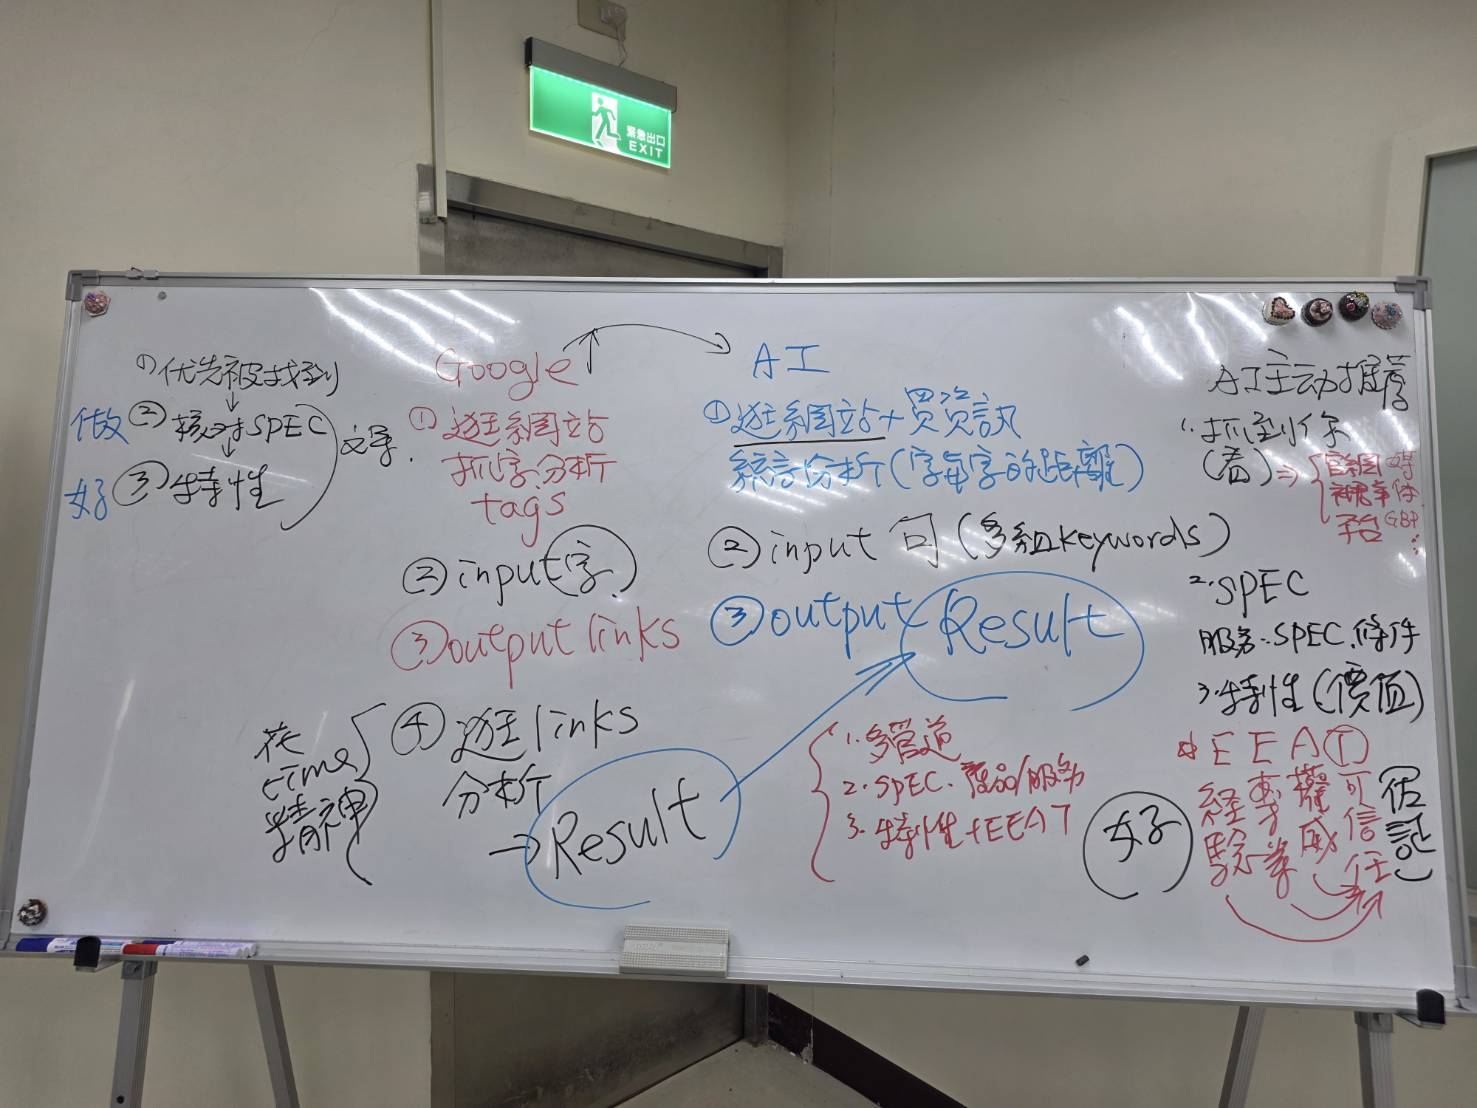 緊急出口
EXIT
①优先被找到
做 ② 核对SPEC
好 ③ 特性
Google
① 逛網站
抓字分析
tags
② input字
③ output links
④ 逛links
分析
→ Result
花
time
精神
AI
① 逛網站+買資訊
統計分析(字與字的距離)
② input 句 (多組keywords)
③ output Result
1. 多管道
2. SPEC. 產品/服務
3. 特性+EEAT
AI主動推荐
1. 抓到你
(看) ⇒ 官網 媒体
平台 GBP
2. SPEC
服务:SPEC.條件
3. 特性(價值)
EEAT
經驗
專業
權威
可信任
(佐証)
好